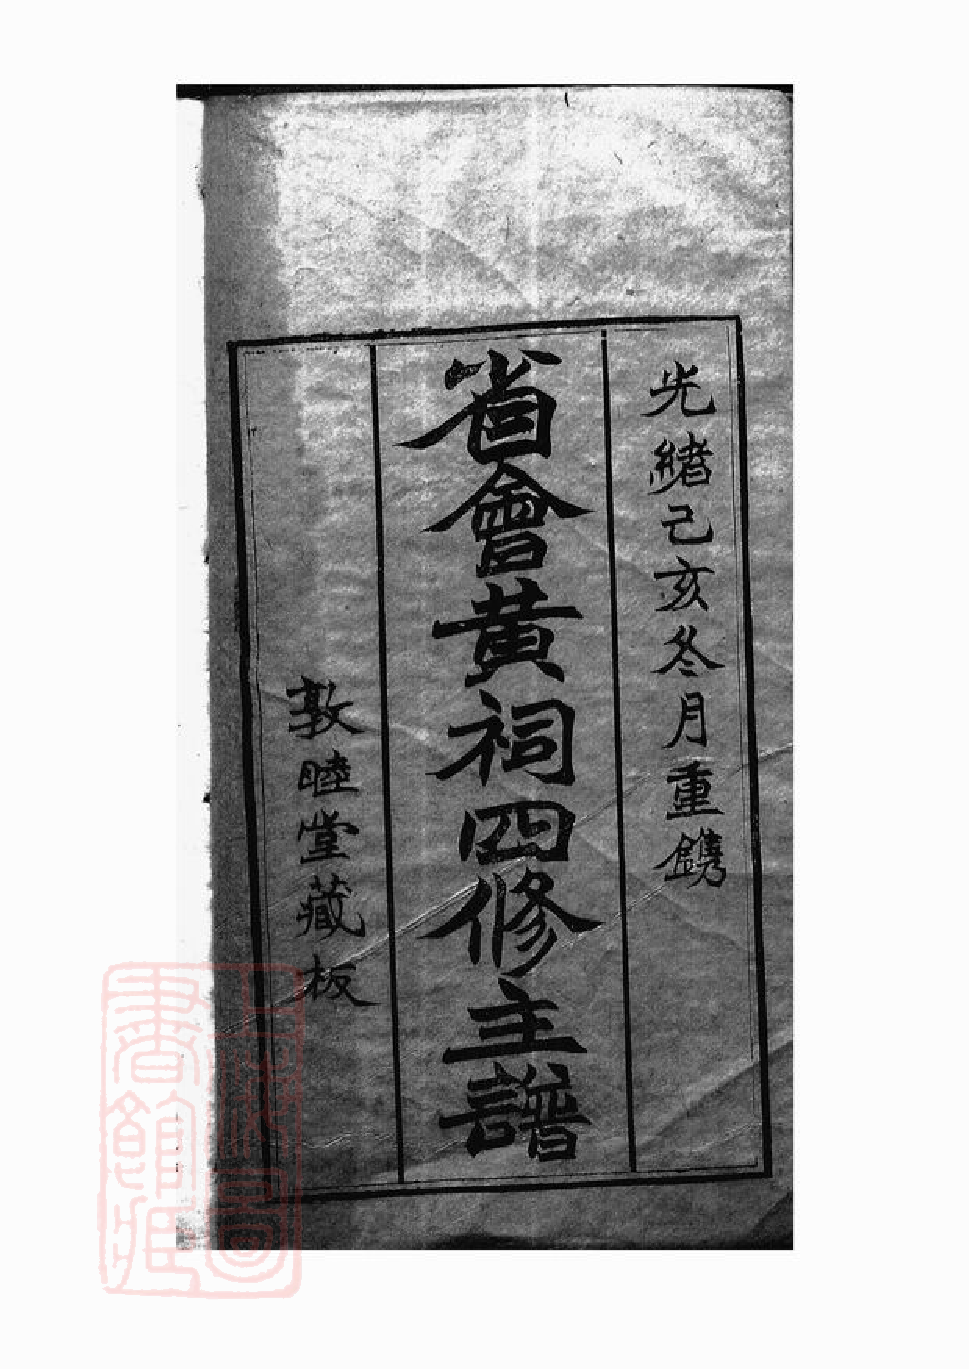 光緒己亥冬月重鐫
省會黃祠四修主譜
敦睦堂藏板
上海圖書館藏